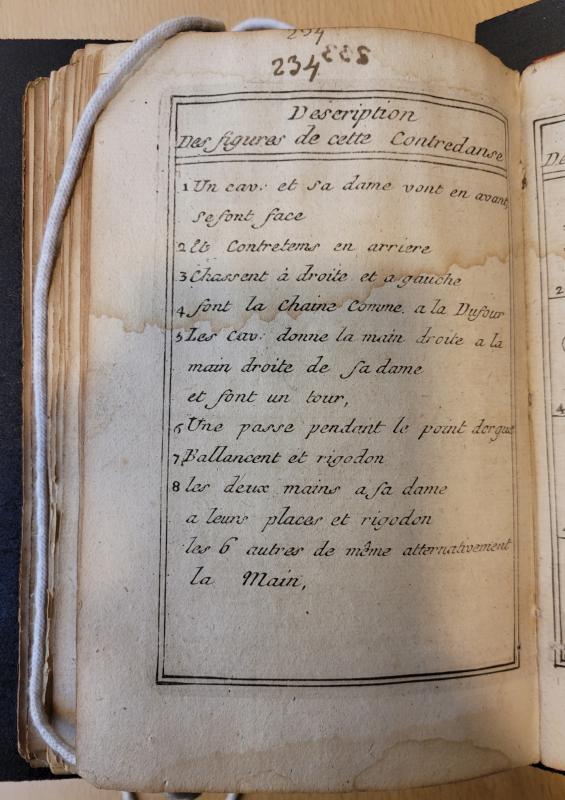 234
234
233
Description
Des figures de cette Contredanse
1 Un cav: et sa dame vont en avant,
se font face
2 Et Contretems en arriere
3 Chassent à droite et a gauche
4 font la Chaine Comme a la Dufour
5 Les Cav: donne la main droite a la
main droite de sa dame
et font un tour,
6 Une passe pendant le point dorgue
7 Ballancent et rigodon
8 les deux mains a sa dame
a leurs places et rigodon
les 6 autres de même alternativement
la Main,
De
2
4